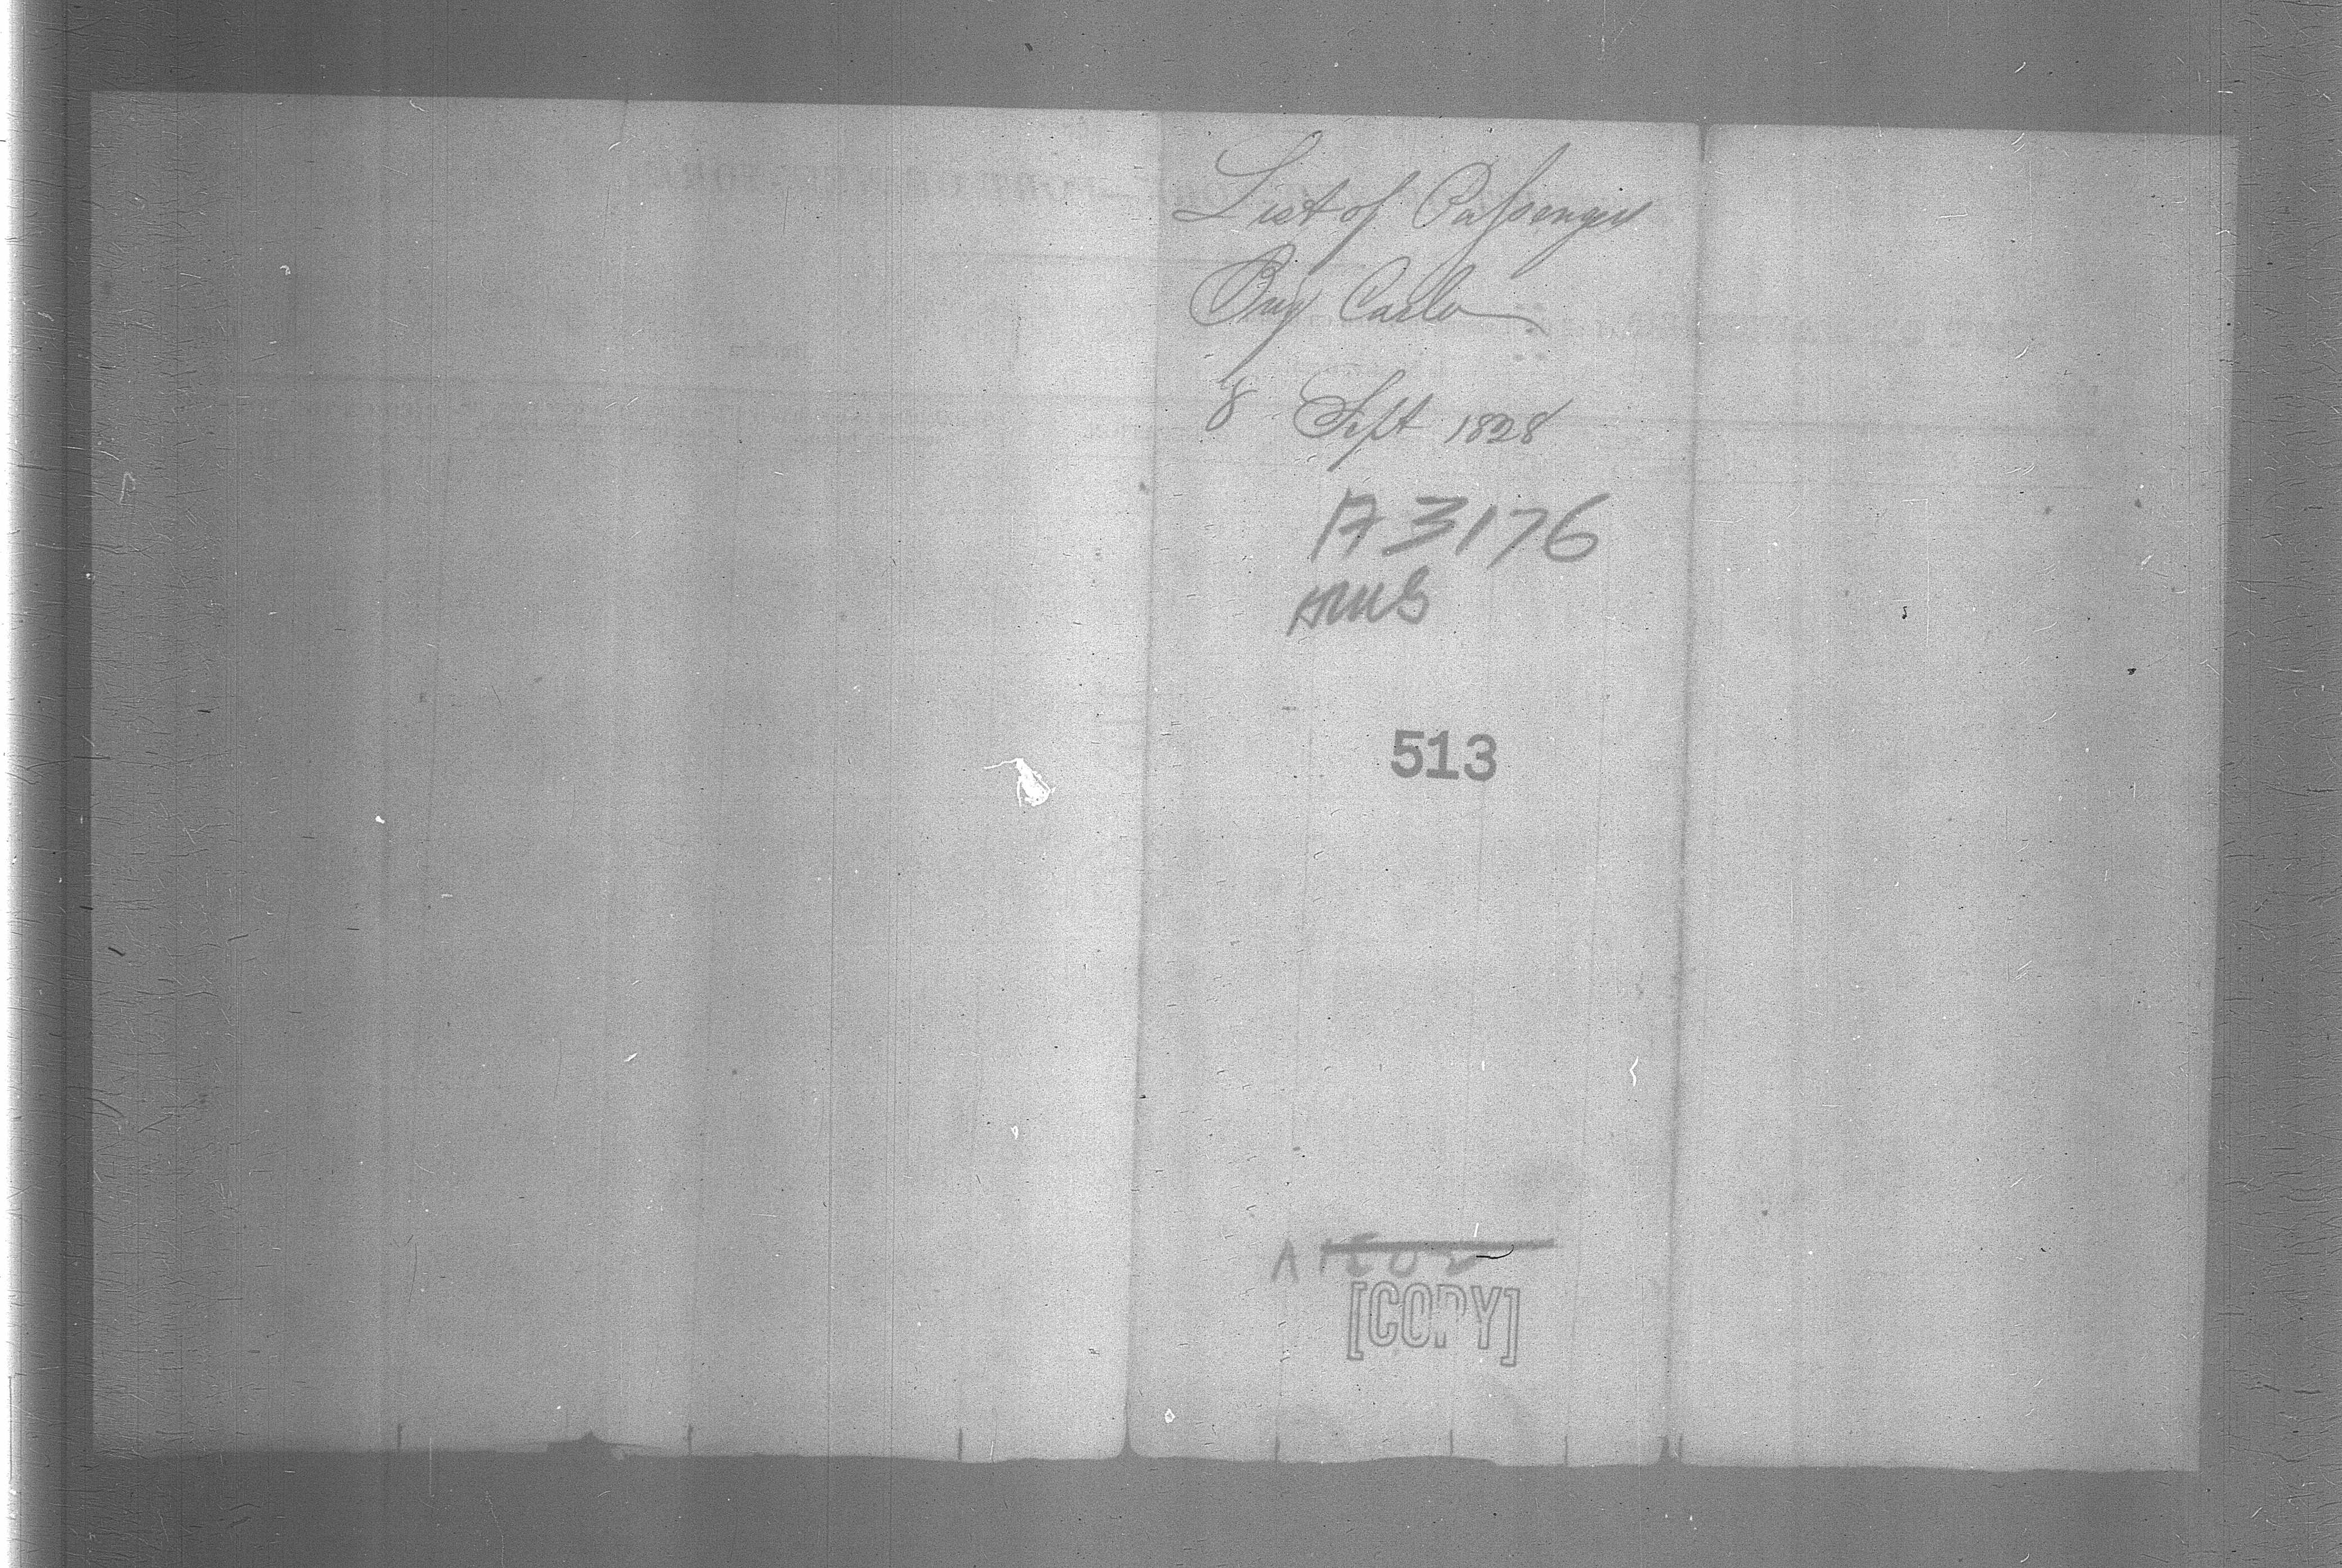 List of Passenger
Brig Carlo
8 Sept 1828
A 3176
513
A
[COPY]